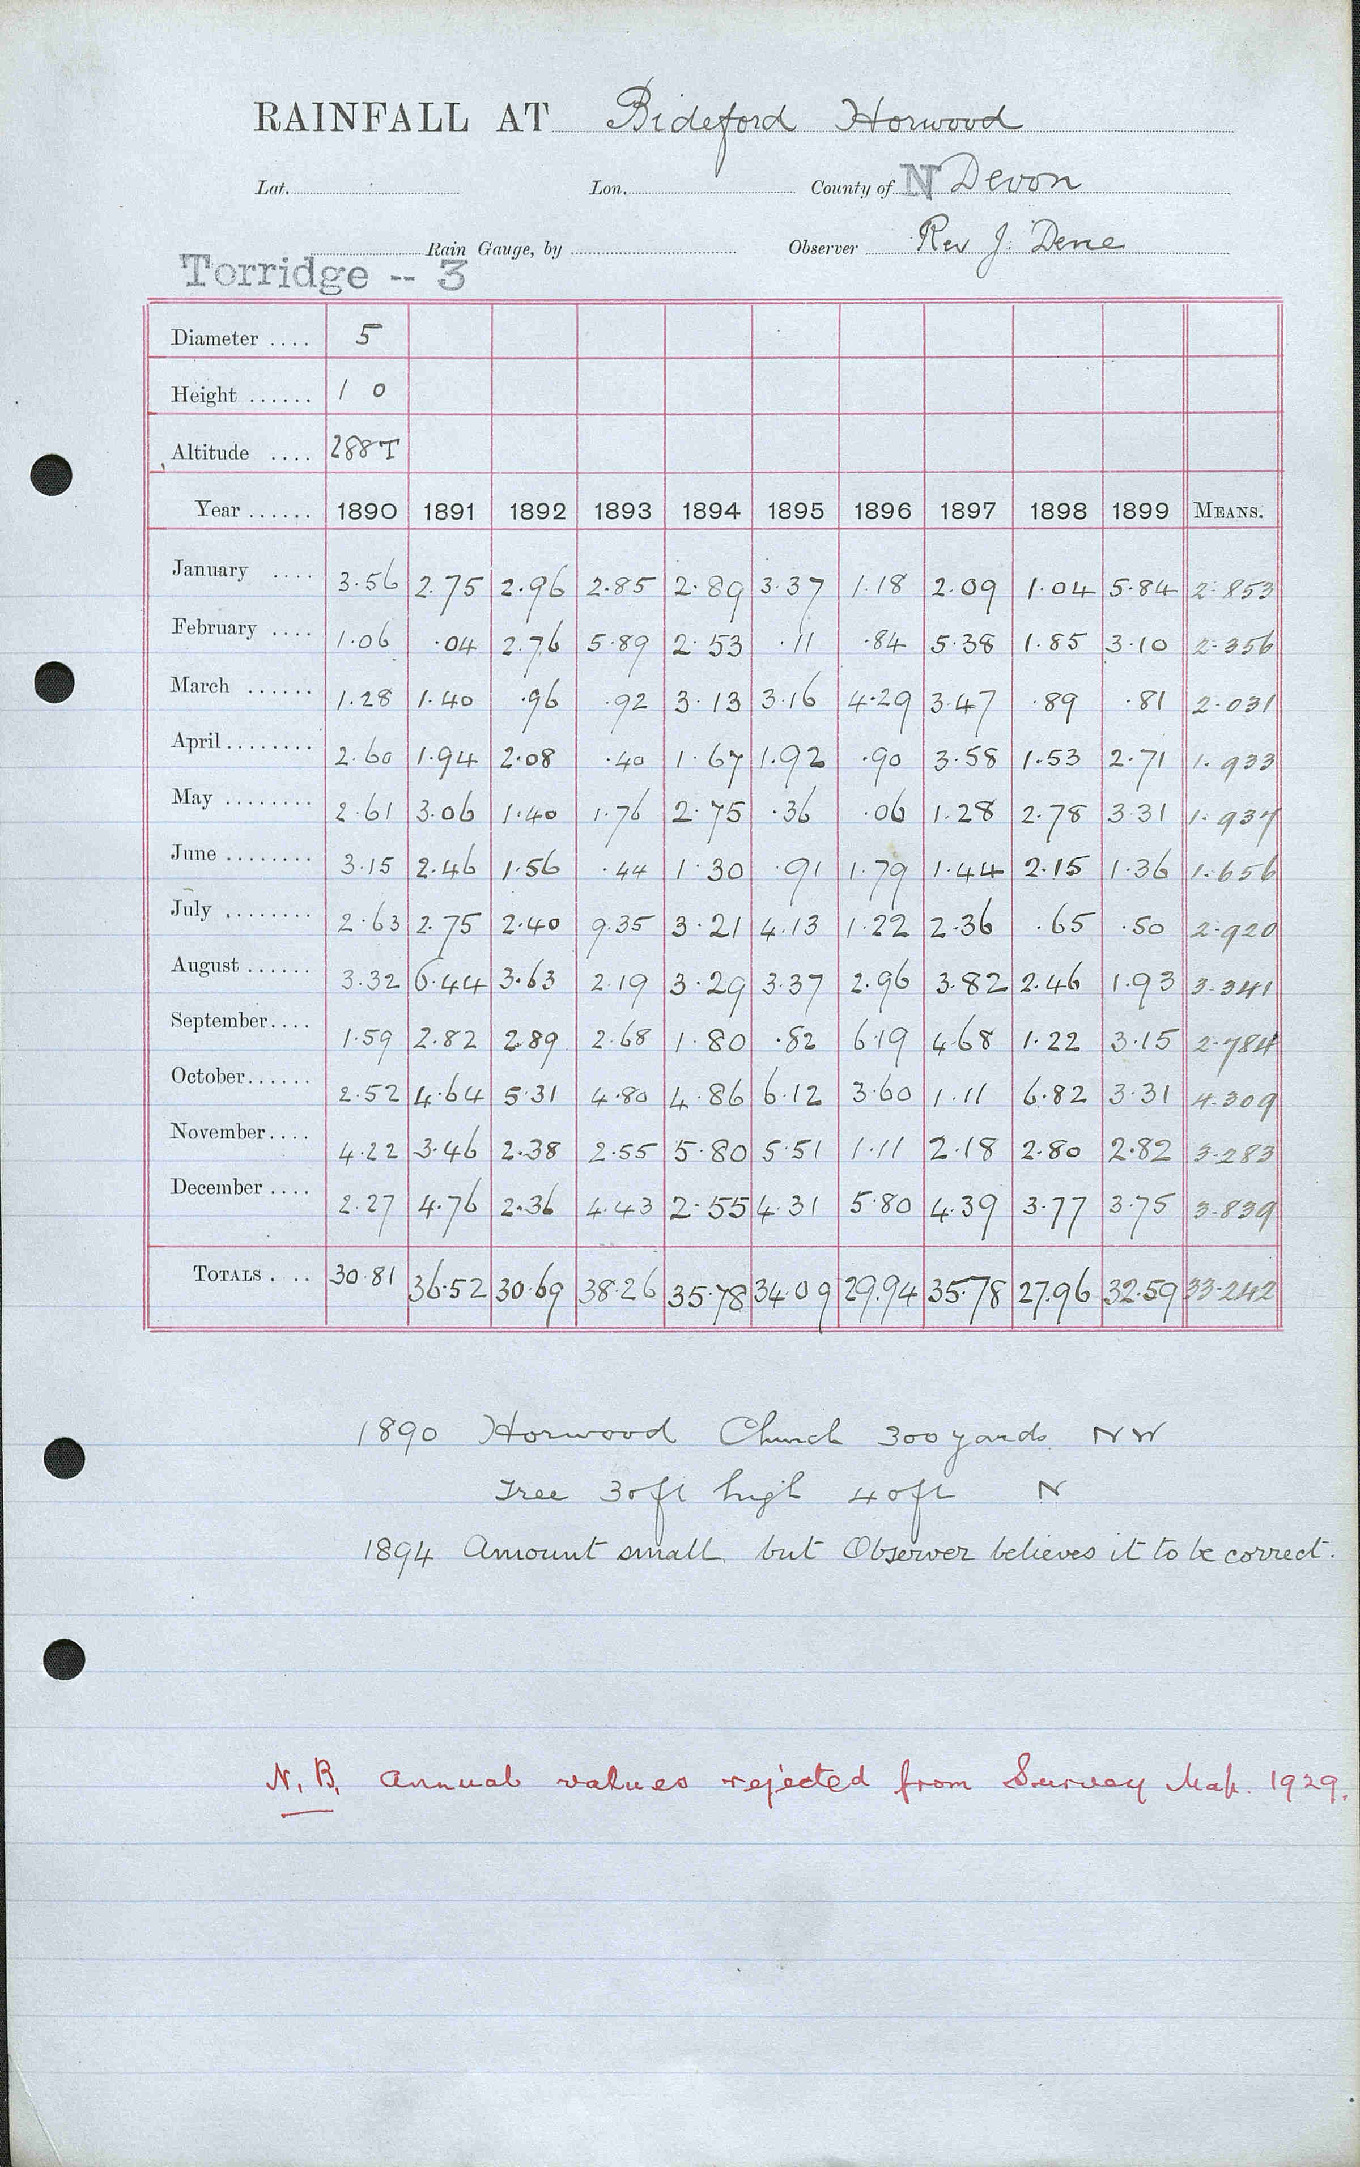 RAINFALL AT Bideford Horwood
Lat. Lon. County of N Devon
Rain Gauge, by Observer Rev J. Dene
Torridge -- 3
Diameter .... 5
Height ...... 1 0
Altitude .... 288T
Year ...... 1890 1891 1892 1893 1894 1895 1896 1897 1898 1899 MEANS.
January .... 3.56 2.75 2.96 2.85 2.89 3.37 1.18 2.09 1.04 5.84 2.853
February .... 1.06 .04 2.76 5.89 2.53 .11 .84 5.38 1.85 3.10 2.356
March ...... 1.28 1.40 .96 .92 3.13 3.16 4.29 3.47 .89 .81 2.031
April ........ 2.60 1.94 2.08 .40 1.67 1.92 .90 3.58 1.53 2.71 1.933
May ........ 2.61 3.06 1.40 1.76 2.75 .36 .06 1.28 2.78 3.31 1.937
June ........ 3.15 2.46 1.56 .44 1.30 .91 1.79 1.44 2.15 1.36 1.656
July ........ 2.63 2.75 2.40 9.35 3.21 4.13 1.22 2.36 .65 .50 2.920
August ...... 3.32 6.44 3.63 2.19 3.29 3.37 2.96 3.82 2.46 1.93 3.341
September.... 1.59 2.82 2.89 2.68 1.80 .82 6.19 4.68 1.22 3.15 2.784
October...... 2.52 4.64 5.31 4.80 4.86 6.12 3.60 1.11 6.82 3.31 4.309
November.... 4.22 3.46 2.38 2.55 5.80 5.51 1.11 2.18 2.80 2.82 3.283
December .... 2.27 4.76 2.36 4.43 2.55 4.31 5.80 4.39 3.77 3.75 3.839
TOTALS .... 30.81 36.52 30.69 38.26 35.78 34.09 29.94 35.78 27.96 32.59 33.242
1890 Horwood Church 300 yards NW
Tree 30ft high 40ft N
1894 Amount small but Observer believes it to be correct.
N.B. Annual values rejected from Survey Map. 1929.